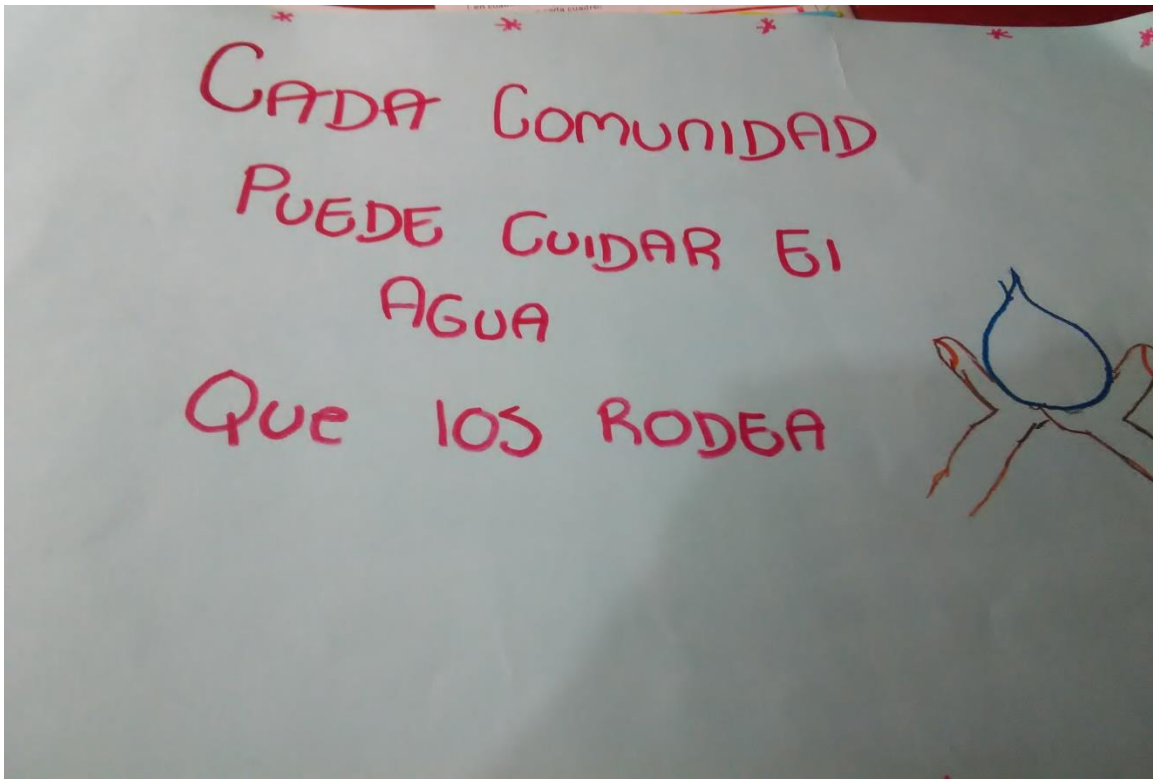 CADA COMUNIDAD
PUEDE CUIDAR El
AGUA
Que los RODEA